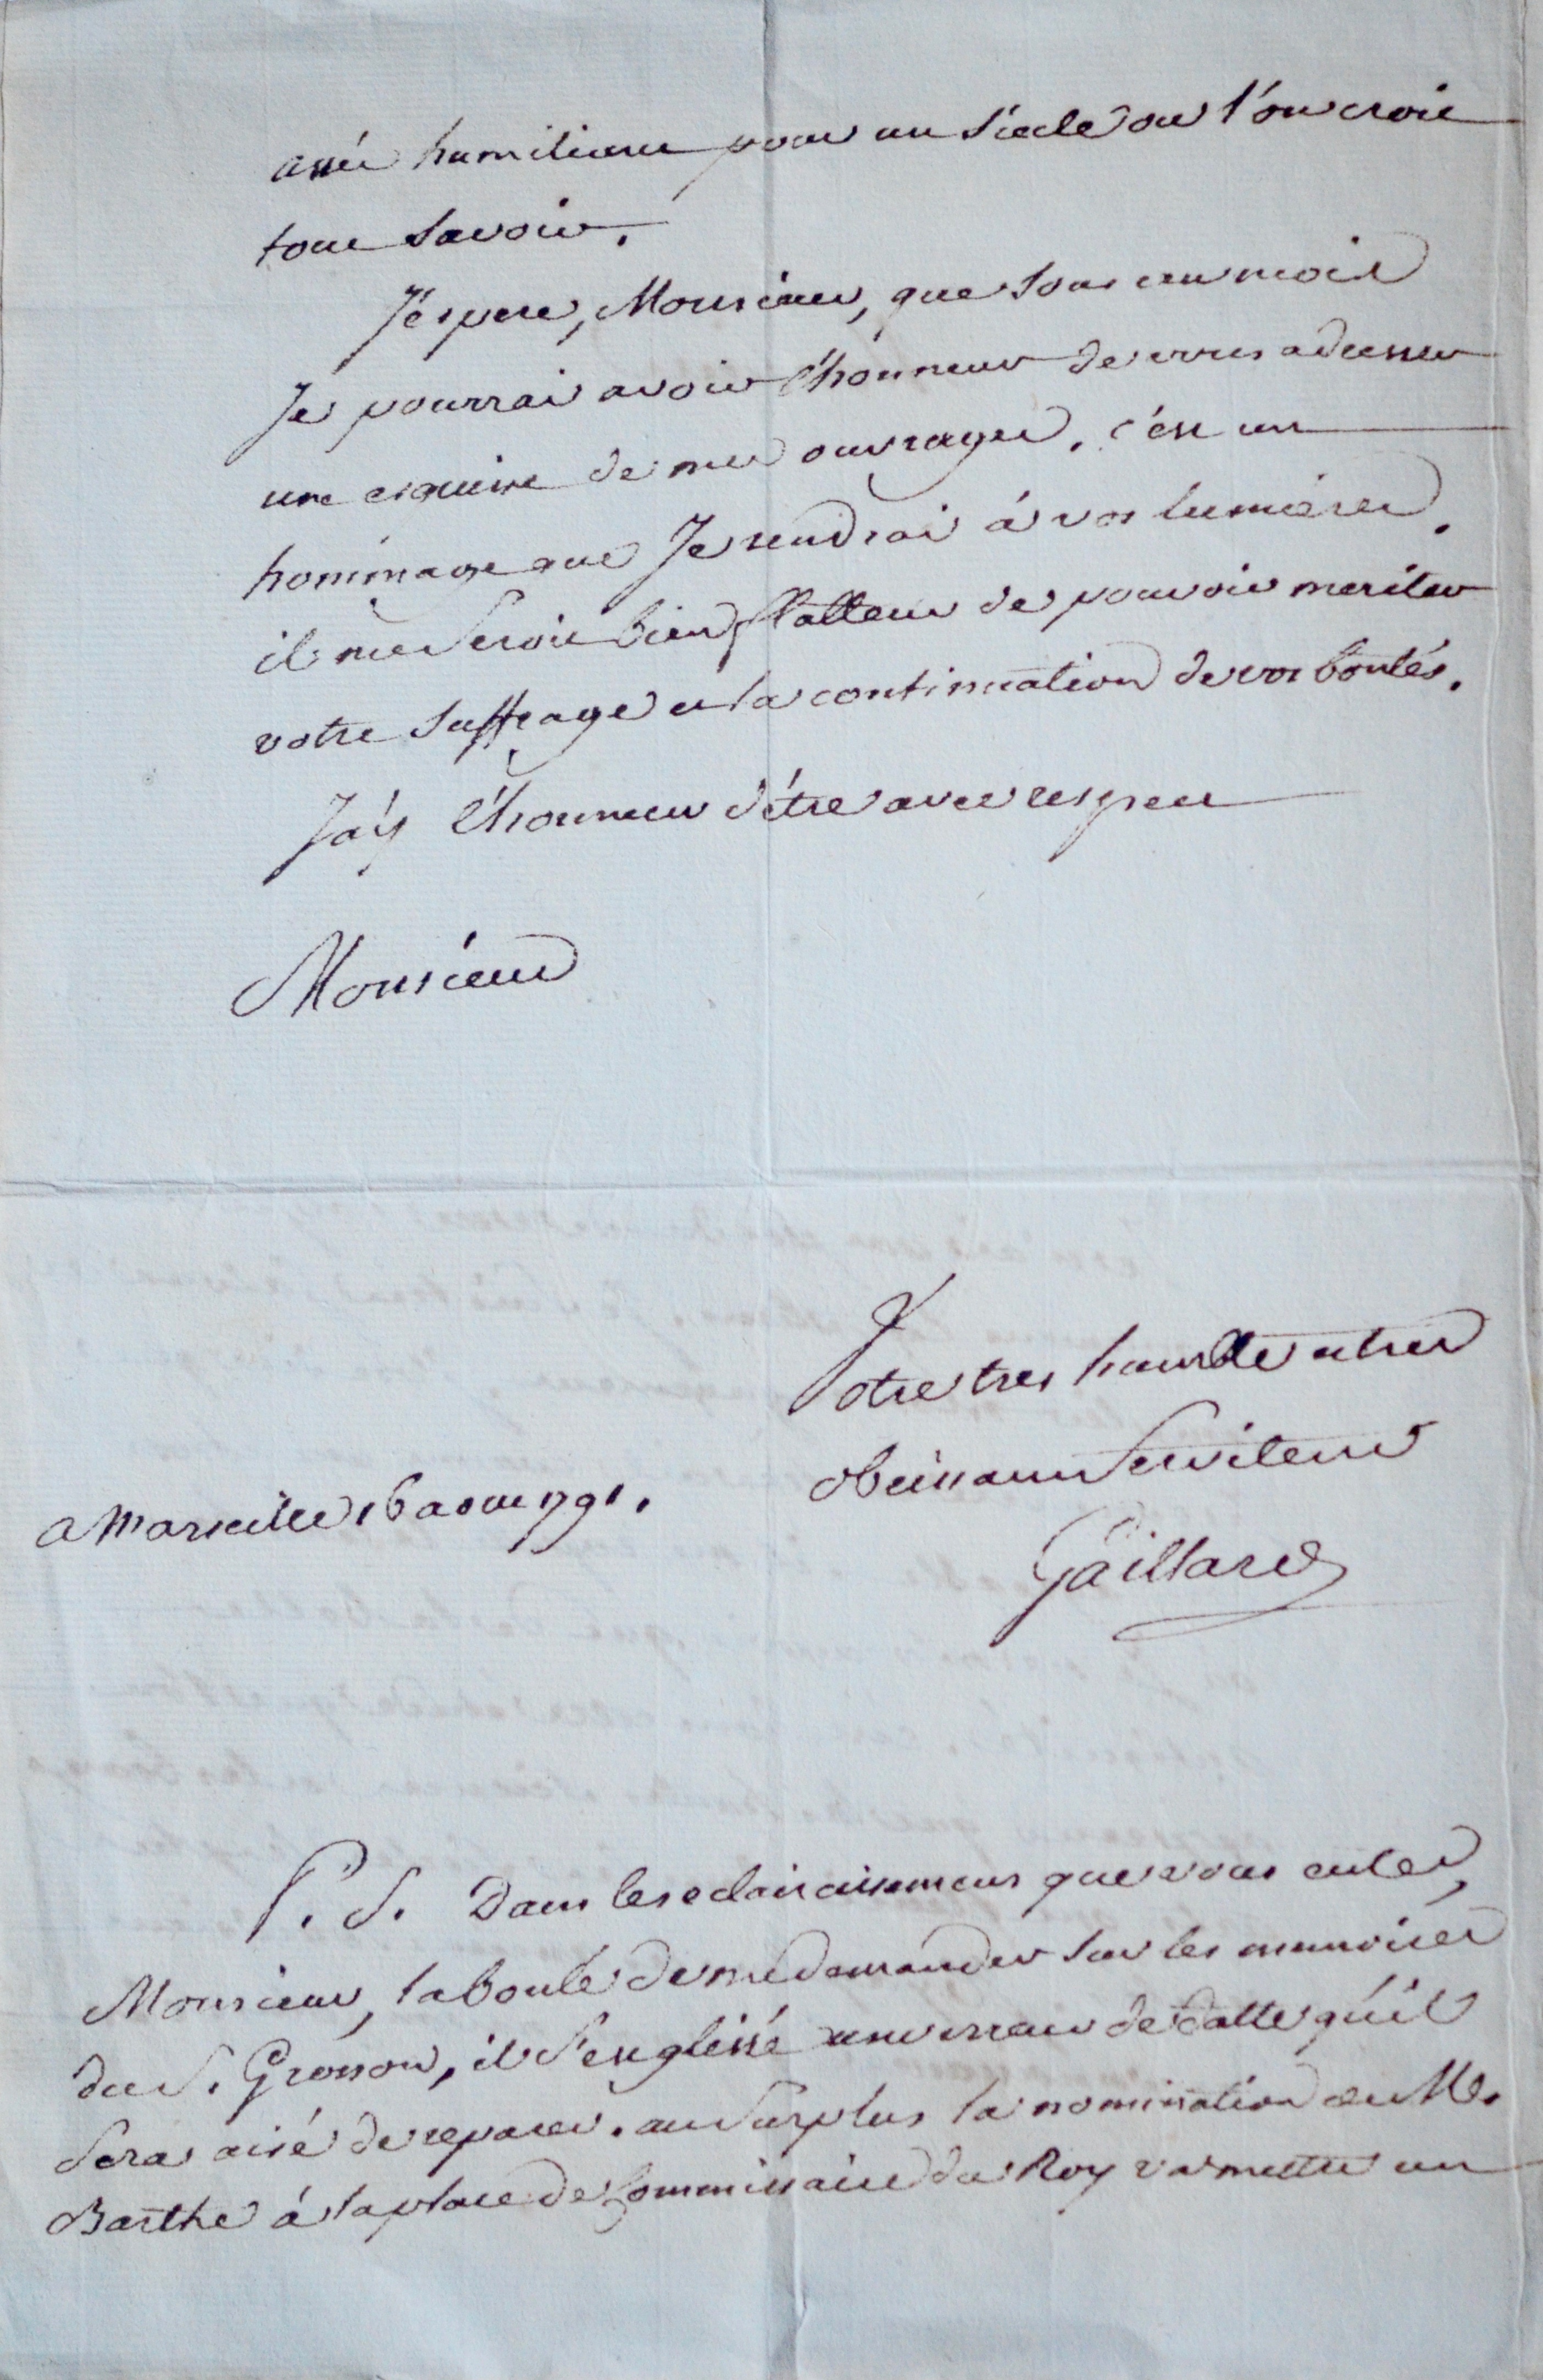 assés humiliant pour un siecle ou l'on croit
tout savoir.
J'espere, Monsieur, que sous un mois
Je pourrai avoir l'honneur de vous adresser
une esquisse de mes ouvrages. c'est un
hommage que Je rendrai à vos lumières.
il me seroit bien flatteur de pouvoir meriter
votre suffrage et la continuation de vos bontés.
J'ay l'honneur d'être avec respect
Monsieur
Votre tres humble et tres
obeissant Serviteur
Gaillard
a Marseille 16 aout 1791.
P. S. Dans les eclaircissemens que vous eutes,
Monsieur, la bonté de me demander sur les memoires
du S. Grosson, il s'est glissé une erreur de datte qu'il
sera aisé de reparer. au surplus la nomination de Me.
Barthe à la place de Commissaire du Roy va mettre un